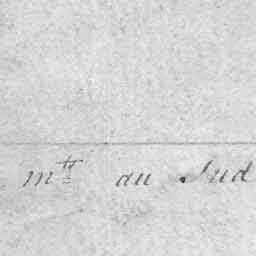 mtt au Sud